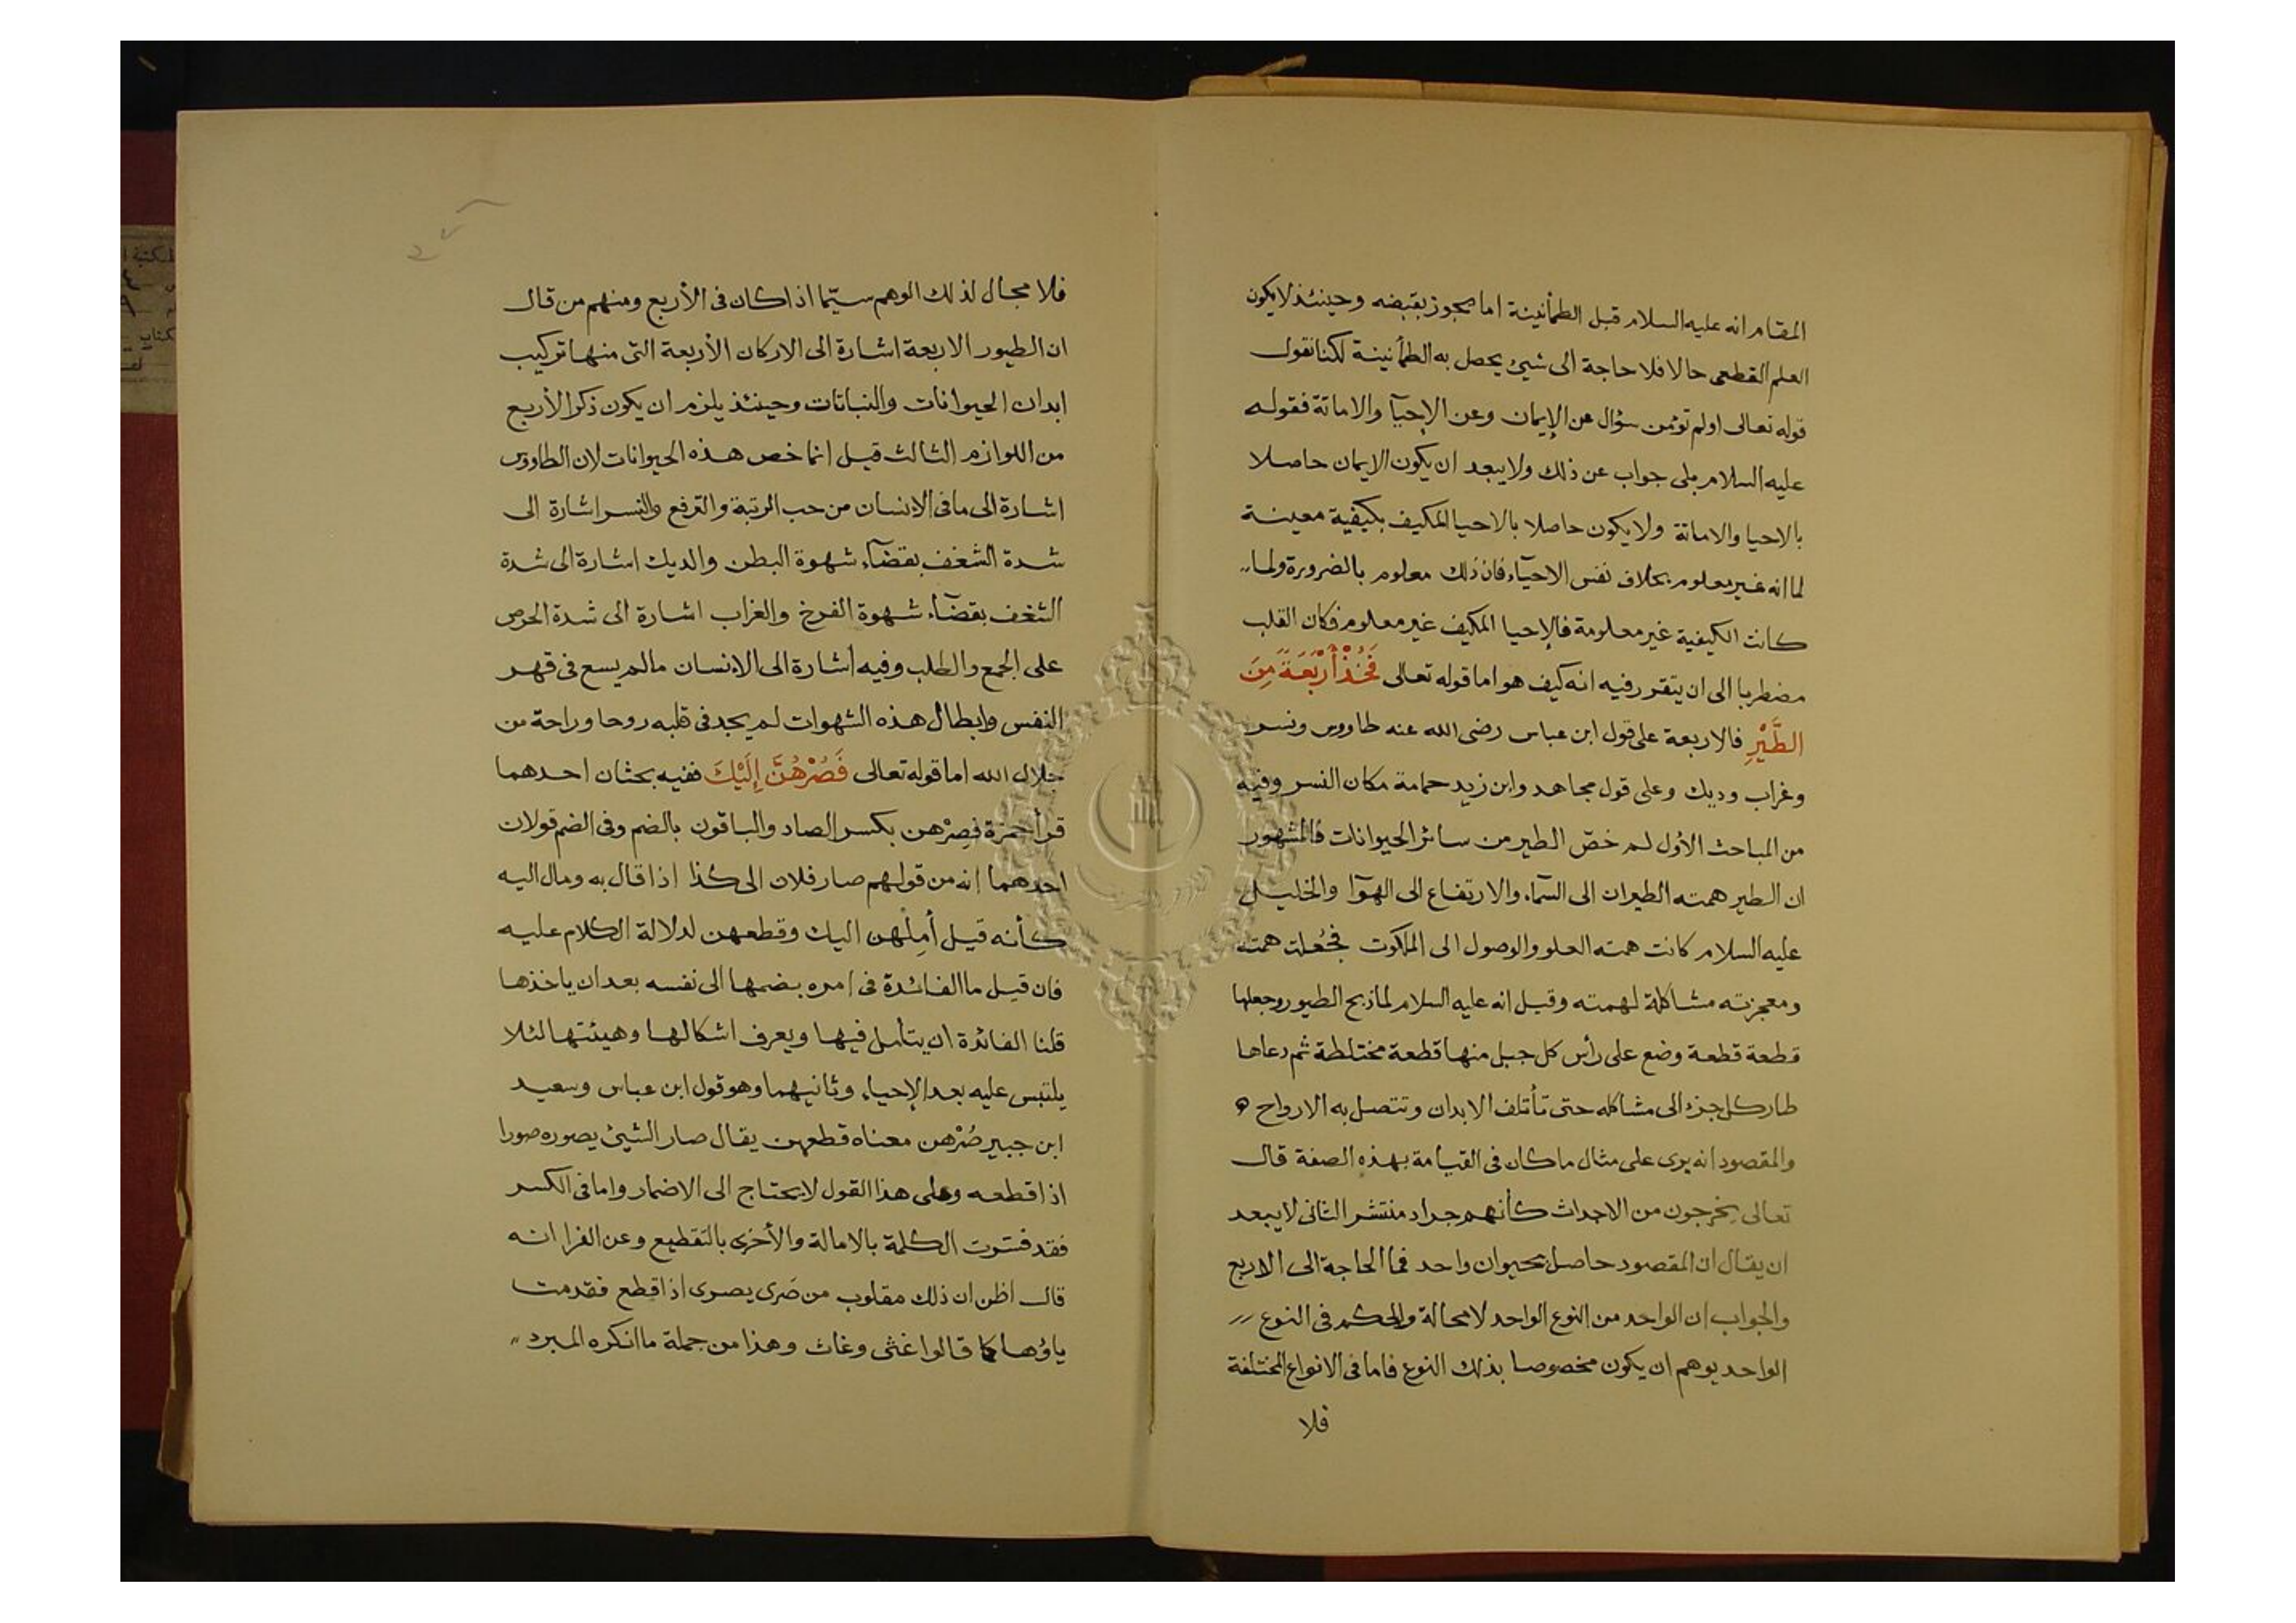 المقام انه عليه السلام قبل الطمأنينة اما يجوز بقبضه وحينئذ لا يكون
العلم القطعى حالا فلا حاجة الى شيئ يحصل به الطمأنينة لكنا نقول
قوله تعالى اولم تؤمن سؤال عن الإيمان وعن الإحيآ والاماتة فقوله
عليه السلام بلى جواب عن ذلك ولا يبعد ان يكون الايمان حاصلا
بالاحيا والاماتة ولا يكون حاصلا بالاحيا المكيف بكيفية معينة
لما انه غير معلوم بخلاف نفس الاحيآء فان ذلك معلوم بالضرورة ولما
كانت الكيفية غير معلومة فالإحيا المكيف غير معلوم فكان القلب
مضطربا الى ان يتقرر فيه انه كيف هو اما قوله تعالى فَخُذْ أَرْبَعَةً مِنَ
الطَّيْرِ فالاربعة على قول ابن عباس رضى الله عنه طاووس ونسر
وغراب وديك وعلى قول مجاهد وابن زيد حمامة مكان النسر وفيه
من المباحث الاول لم خصّ الطير من سائر الحيوانات فالمشهور
ان الطير همته الطيران الى السمآء والارتفاع الى الهوآ والخليل
عليه السلام كانت همته العلو والوصول الى الملكوت فجُعلت همته
ومعجزته مشاكلة لهمته وقيل انه عليه السلام لما ذبح الطيور وجعلها
قطعة قطعة وضع على رأس كل جبل منها قطعة مختلطة ثم دعاها
طار كل جزء الى مشاكله حتى تأتلف الابدان وتتصل به الارواح
والمقصود انه يرى على مثال ما كان فى القيامة بهذه الصفة قال
تعالى يخرجون من الاجداث كأنهم جراد منتشر الثانى لا يبعد
ان يقال ان المقصود حاصل بحيوان واحد فما الحاجة الى الاربع
والجواب ان الواحد من النوع الواحد لا محالة والحكم فى النوع
الواحد يوهم ان يكون مخصوصا بذلك النوع فاما فى الانواع المختلفة
فلا
فلا مجال لذلك الوهم سيّما اذا كان فى الأربع ومنهم من قال
ان الطيور الاربعة اشارة الى الاركان الأربعة التى منها تركيب
ابدان الحيوانات والنباتات وحينئذ يلزم ان يكون ذكر الأربع
من اللوازم الثالث قيل انما خص هذه الحيوانات لان الطاووس
اشارة الى ما فى الانسان من حب الرتبة والترفع والنسر اشارة الى
شدة الشغف بقضآء شهوة البطن والديك اشارة الى شدة
الشغف بقضآء شهوة الفرج والغراب اشارة الى شدة الحرص
على الجمع والطلب وفيه اشارة الى الانسان ما لم يسع فى قهر
النفس وابطال هذه الشهوات لم يجد فى قلبه روحا وراحة من
جلال الله اما قوله تعالى فَصُرْهُنَّ إِلَيْكَ ففيه بحثان احدهما
قرأ حمزة فصِرْهن بكسر الصاد والباقون بالضم وفى الضم قولان
احدهما انه من قولهم صار فلان الى كذا اذا قال به ومال اليه
كأنه قيل أمِلْهن اليك وقطعهن لدلالة الكلام عليه
فان قيل ما الفائدة فى امره بضمها الى نفسه بعد ان ياخذها
قلنا الفائدة ان يتأمل فيها ويعرف اشكالها وهيئتها لئلا
يلتبس عليه بعد الإحياء وثانيهما وهو قول ابن عباس وسعيد
ابن جبير صُرْهن معناه قطعهن يقال صار الشيئ يصوره صورا
اذا قطعه وعلى هذا القول لا يحتاج الى الاضمار واما فى الكسر
فقد فسّرت الكلمة بالامالة والأخرى بالتقطيع وعن الفرا انه
قال اظن ان ذلك مقلوب من صَرى يصرى اذا قطع فقدمت
ياؤها كما قالوا غثى وغاث وهذا من جملة ما انكره المبرد